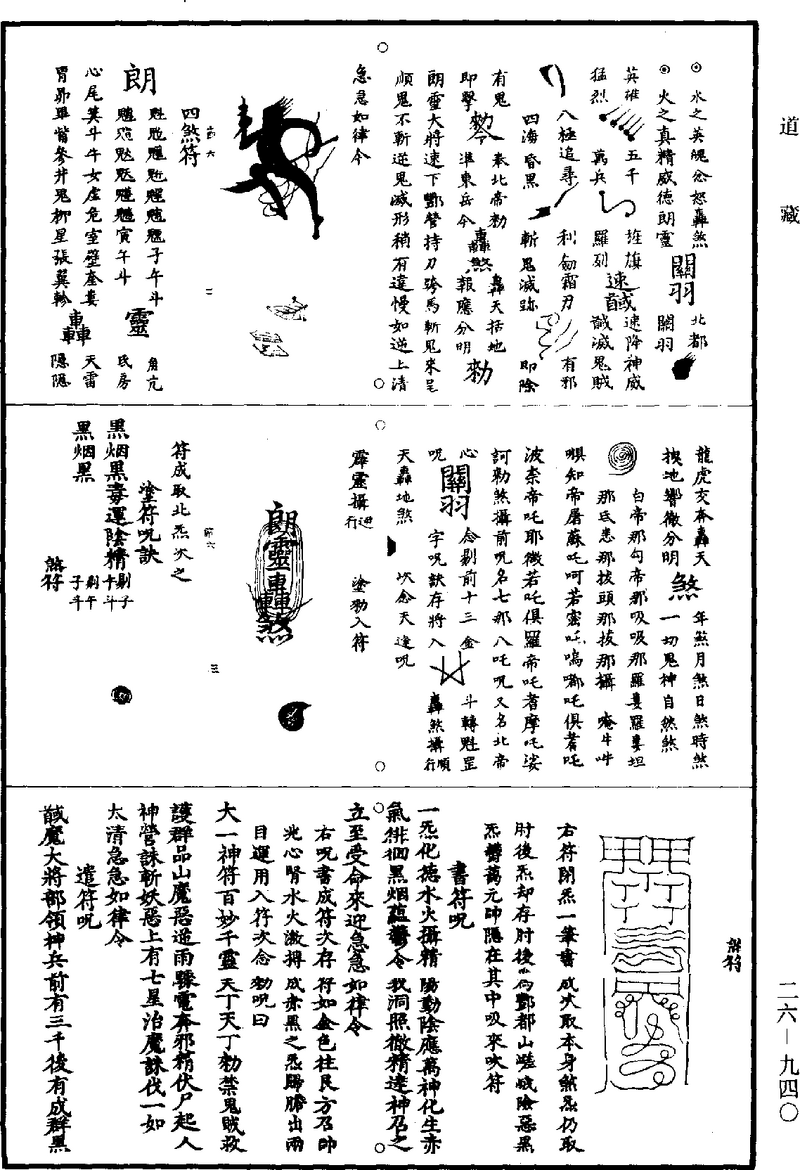 道藏
二六—九四〇
水之英魄忿怒轟煞
北都
火之真精威德朗靈
關羽
關羽
英雄
五千
旌旗
速降神威
猛烈
萬兵
羅列
速馘
馘滅鬼賊
八極追尋
利劍霜刃
有邪
四海昏黑
斬鬼滅跡
即除
有鬼
勑
奉北帝勑
轟煞
轟天括地
勑
即擊
準東岳令
報應分明
朗靈大將速下酆營持刀跨馬斬鬼來呈
順鬼不斬逆鬼滅形稍有違慢如逆上清
急急如律令
第六
二
四煞符
子午斗
朗
靈
角亢
寅午斗
氐房
心尾箕斗牛女虛危室壁奎婁
轟
天雷
胃昴畢觜參井鬼柳星張翼軫
隱隱
龍虎交奔轟天
年煞月煞日煞時煞
挨地響徹分明
煞
一切鬼神自然煞
白帝那勾帝那吸吸那羅婁羅婁坦
那氐悉那拔頭那拔那攝
唵牛吽
惧知帝屠蘇吒呵若蜜吒嗚嘟吒俱耆吒
波奈帝吒耶微若吒俱羅帝吒者摩吒娑
訶勑煞攝前呪名七那八吒呪又名北帝
心呪
關羽
念剔前十三金
斗轉魁罡
字呪訣存將入
轟煞攝順行
天轟地煞
次念天蓬呪
霹靂攝逆行
塗勑入符
朗靈轟轟煞
第六
三
符成取北炁次之
塗符呪訣
黑烟黑毒運陰精
剔子午斗
黑烟黑
剔午子斗
煞符
煞符
右符閉炁一筆書成次取本身煞炁仍取
肘後炁却存肘後為酆都山嵯峨陰惡黑
炁鬱藹元帥隱在其中吸來吹符
書符呪
一炁化德水火攝精陽動陰應萬神化生赤
氣徘徊黑烟蘊鬱令我洞照徹精達神召之
立至受命來迎急急如律令
右呪書成符次存符如金色往艮方召帥
兆心腎水火激搏成赤黑之炁歸膽出兩
目運用入符次念勑呪曰
大一神符百妙千靈天丁天丁勑禁鬼賊救
護群品山魔惡逆雨驟電奔邪精伏尸起人
神營誅斬妖惡上有七星治魔誅伐一如
太清急急如律令
遣符呪
馘魔大將部領神兵前有三千後有成群黑